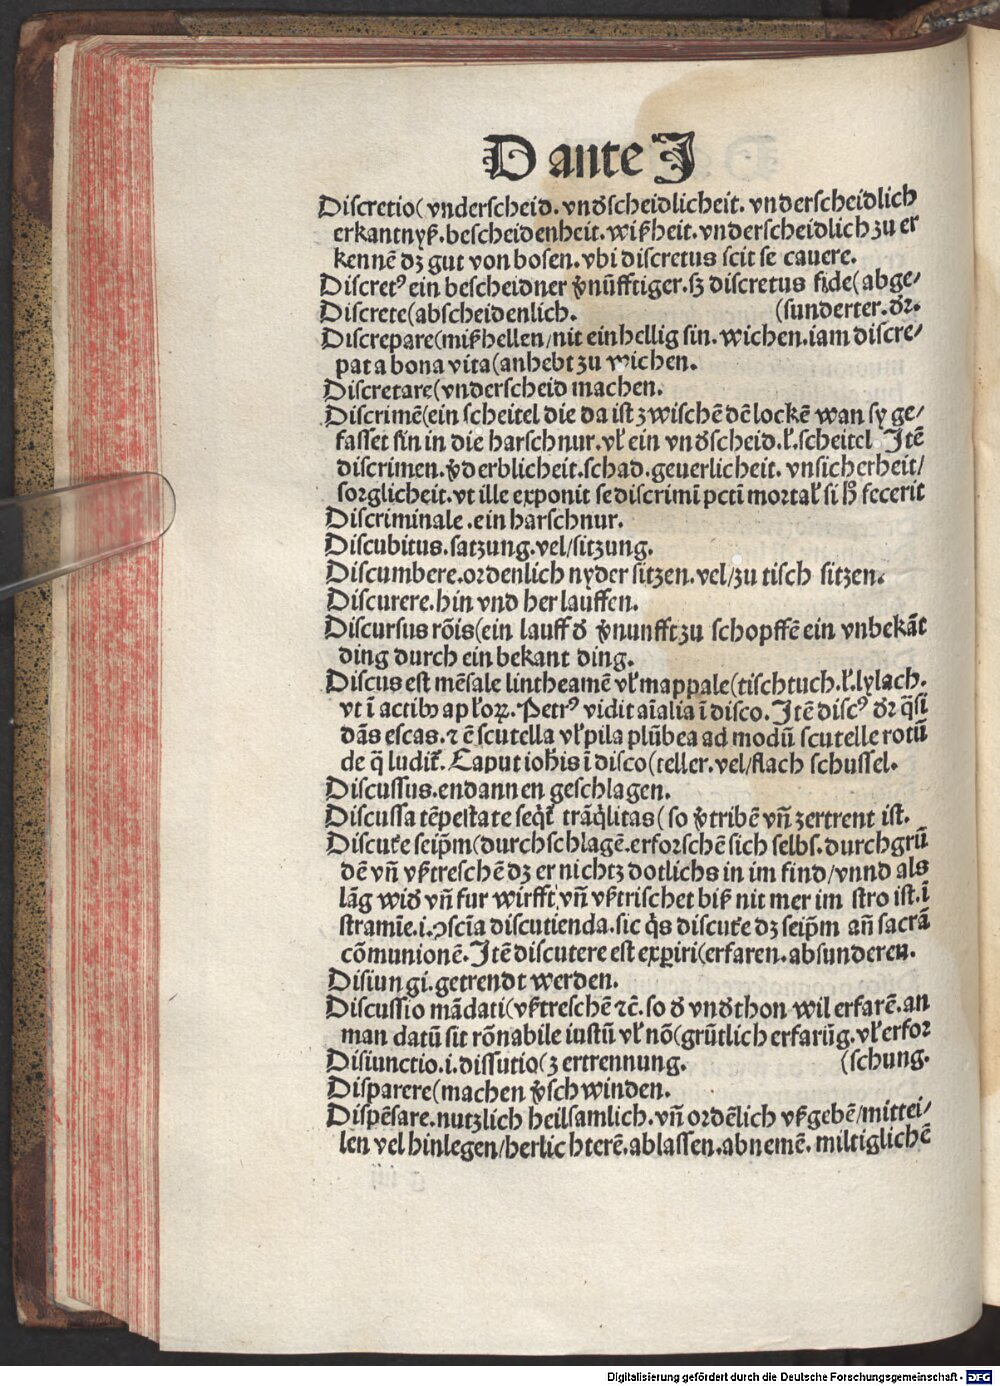 D ante J
Discretio( vnderscheid. vnd̕scheidlicheit. vnderscheidlich
erkantnyß. bescheidenheit. wißheit. vnderscheidlich zu er
kennē dz gut von bosen. vbi discretus scit se cauere.
Discretꝰ ein bescheidner v̕nüfftiger. sz discretus fide( abge⸗
Discrete( abscheidenlich. (sunderter. dr̄.
Discrepare( mißhellen/ nit einhellig sin. wichen. iam discre⸗
pat a bona vita( anhebt zu wichen.
Discretare( vnderscheid machen.
Discrimē( ein scheitel die da ist zwischē dē lockē wan sy ge⸗
fasset sin in die harschnur. vl̕ ein vnd̕scheid. l̕. scheitel Jtē
discrimen. v̕derblicheit. schad. geuerlicheit. vnsicherheit/
sorglicheit. vt ille exponit se discrimī pctī mortal̕ si h̕ fecerit
Discriminale. ein harschnur.
Discubitus. satzung. vel/ sitzung.
Discumbere. ordenlich nyder sitzen. vel/ zu tisch sitzen.
Discurere. hin vnd her lauffen.
Discursus rōis( ein lauff d̕ v̕nunfft zu schopffē ein vnbekāt
ding durch ein bekant ding.
Discus est mēsale lintheamē vl̕ mappale( tischtuch. l̕. lylach.
vt ī actibꝫ apl̕oꝝ. Petrꝰ vidit aīalia ī disco. Jtē discꝰ dr̄ q̄si
dās escas. ⁊ ē scutella vl̕ pila plūbea ad modū scutelle rotū
de q̄ ludit̕. Caput ioh̄is ī disco( teller. vel/ flach schussel.
Discussus. endannen geschlagen.
Discussa tēpestate seqt̕ trāq̇litas( so v̕tribē vn̄ zertrent ist.
Discut̕e seip̄m( durchschlagē. erforschē sich selbs. durchgrū
dē vn̄ vßtreschē dz er nichtz dotlichs in im find/ vnnd als
lāg wid̕ vn̄ fur wirfft vn̄ vßtrischet biß nit mer im stro ist. ī
stramīe. i. ꝯscīa discutienda. sic q̇s discut̕e dz seip̄m an̄ sacrā
cōmunionē. Jtē discutere est exꝑiri( erfaren. absunderen.
Disiungi. getrendt werden.
Discussio mādati( vßtreschē ⁊c̄. so d̕ vnd̕thon wil erfarē. an
man datū sit rōnabile iustū vl̕ nō( grūtlich erfarūg. vl̕ erfor
Disiunctio. i. dissutio( zertrennung. (schung.
Disparere( machen v̕schwinden.
Dispēsare. nutzlich heilsamlich. vn̄ ordēlich vßgebē/ mittei⸗
len vel hinlegen/ herlichterē. ablassen. abnemē. miltiglichē
Digitalisierung gefördert durch die Deutsche Forschungsgemeinschaft - DFG